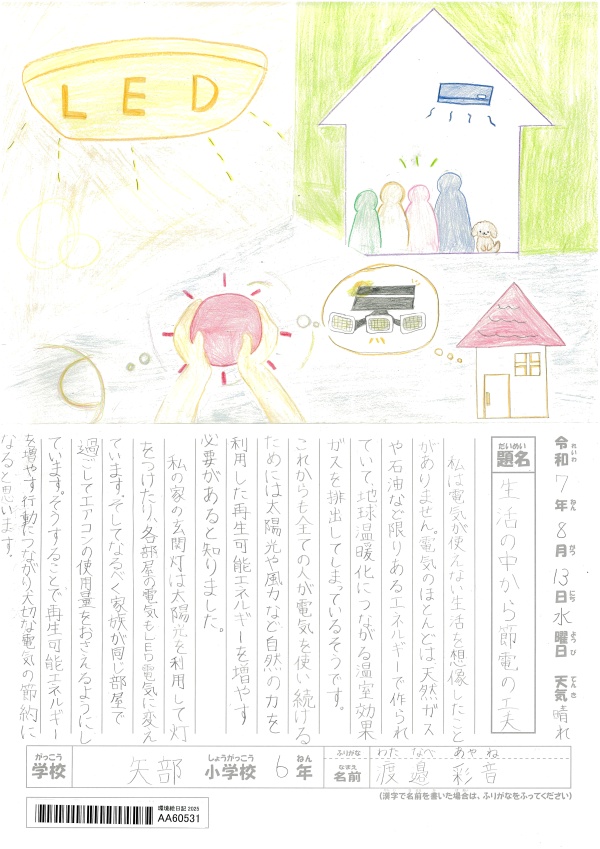 LED
令和7年8月13日水曜日 天気 晴れ
れいわ ねん がつ にち ようび てんき
だいめい
題名
生活の中から節電の工夫
私は電気が使えない生活を想像したこと
がありません。電気のほとんどは天然ガス
や石油など限りあるエネルギーで作られ
ていて、地球温暖化につながる温室効果
ガスを排出してしまっているそうです。
これからも全ての人が電気を使い続ける
ためには太陽光や風力など自然の力を
利用した再生可能エネルギーを増やす
必要があると知りました。
私の家の玄関灯は太陽光を利用して灯
をつけたり、各部屋の電気もLED電気に変え
ています。そしてなるべく家族が同じ部屋で
過ごしてエアコンの使用量をおさえるようにし
ています。そうすることで再生可能エネルギー
を増やす行動につながり大切な電気の節約に
なると思います。
がっこう しょうがっこう ねん
学校 矢部 小学校 6年
ふりがな わたなべ あやね
なまえ
名前 渡邉 彩音
(漢字で名前を書いた場合は、ふりがなをふってください)
環境絵日記 2025
AA60531